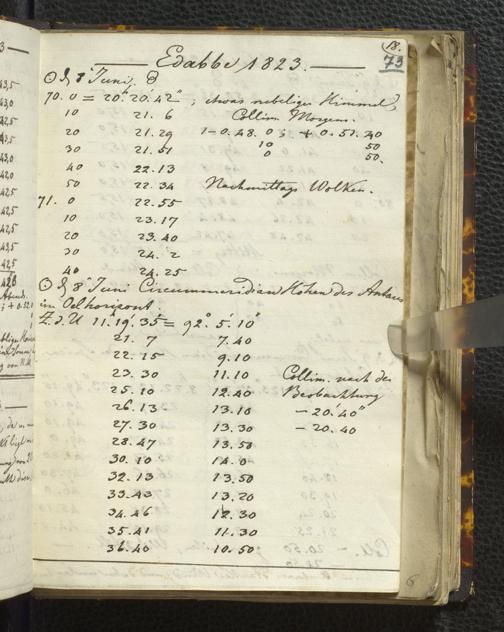 18.
73
Edabbe 1823.
☉ d 8 Juni.
70. 0 = 20. 20. 42" ; etwas nebeliger Himmel,
10 21. 6 Collim. Morgens.
20 21. 29 1 - 0. 48. 0 ; + 0. 51. 40
30 21. 51 10 50
0 50.
40 22. 13
50 22. 34 Nachmittags Wolken.
71. 0 22. 55
10 23. 17
20 23. 40
30 24. 2
40 24. 25
☉ d 8 Juni Circummeridian Höhen des Antares
im Oelhorizont.
Z. d. U 11. 19. 35 = 92°. 5. 10"
21. 7 7. 40
22. 15 9. 10
23. 30 11. 10 Collim. nach der
25. 10 12. 40 Beobachtung
26. 13 13. 10 - 20. 40"
27. 30 13. 30 - 20. 40
28. 47 13. 50
30. 10 14. 0
32. 13 13. 50
33. 43 13. 20
34. 46 12. 30
35. 41 11. 30
36. 40 10. 50
6